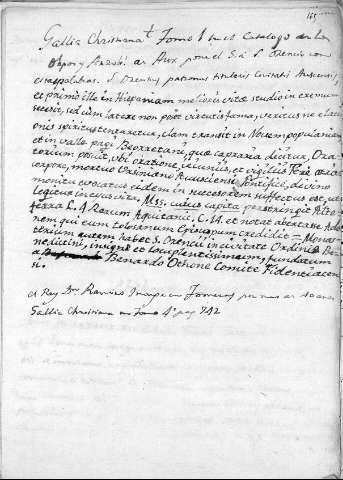 165
Gallia Christiana t. Tomo 1 en el Catalogo de los
Obispos y Arzob. de Aux pone el S. a S. Orencio con
estas palabras. S. Orentius patronus titularis Civitatis Auscensis,
et primo ille in Hispaniam melioris vitæ studio in eremum
secessit, sed cum latere non posset virtutis fama, veritus ne elati-
onis spiritus tentaretur, clam transit in Novempopulaniam
et in valle pagi Beorretani, quæ capraria dicitur, Ora-
torium posuit, ubi oratione, jejuniis, et vigiliis
corpore, mortuo Ursiniano Auxiensi Pontifice, divino
monitu evocatus eidem in successorem suffectus est, ut
legitur in ejus vita, Mss. cujus capita perstringit Alte-
serra L. 4 Rerum Aquitanic. C. 14. et notat aberrasse
nem qui eum Tolosanum Episcopum credidit = Monas-
terium autem habet S. Orentii in civitate Ordinis Be-
nedictini, insigne et locupletissimum, fundatum
a Bernardo Othone Comite Fidenciacen-
si.
el Rey Dn. Ramiro Monge en
Gallia Christiana en Tomo 4º pag 942